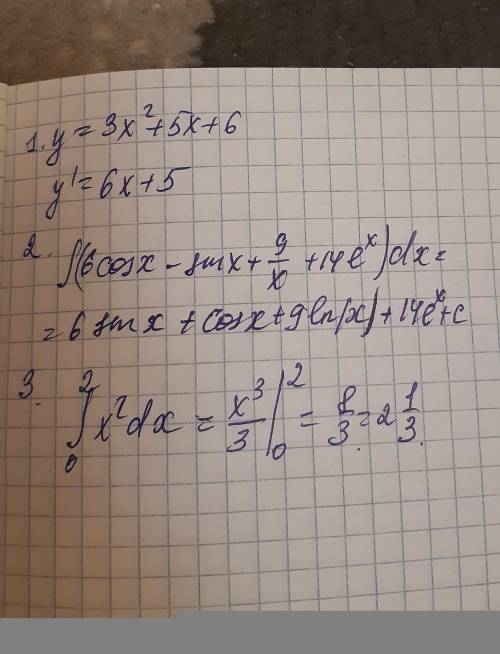 1. y = 3x²+5x+6
y' = 6x+5
2. ∫(6cosx - sinx + 9/x + 14e^x)dx =
= 6 sinx + cosx + 9ln|x| + 14e^x + c
3. ∫₀² x²dx = x³/3 |₀² = 8/3 = 2 1/3.